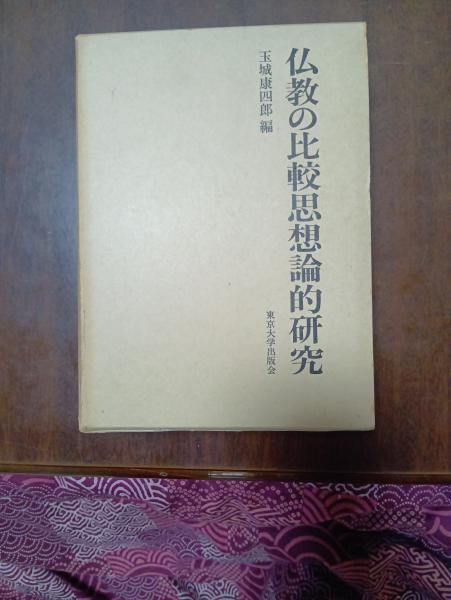 仏教の比較思想論的研究
玉城康四郎 編
東京大学出版会